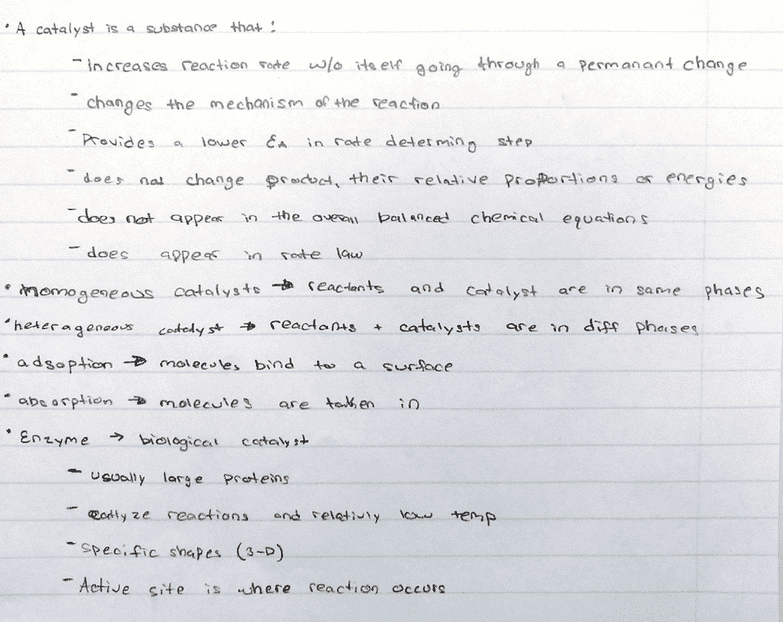 • A catalyst is a substance that :
- increases reaction rate w/o itself going through a permanant change
- changes the mechanism of the reaction
- Provides a lower EA in rate determing step
- does not change product, their relative proportions or energies
- does not appear in the overall balanced chemical equations
- does appear in rate law
• Homogeneous catalysts → reactants and catalyst are in same phases
• heterageneous catalyst → reactants + catalysts are in diff phases
• adsoption → molecules bind to a surface
• absorption → molecules are taken in
• Enzyme → biological catalyst
- usually large proteins
- catlyze reactions and relativly low temp
- Specific shapes (3-D)
- Active site is where reaction occurs